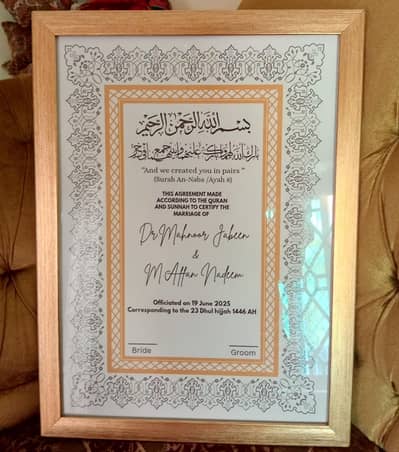 بسم الله الرحمن الرحيم
بارك الله لهما وبارك عليهما وجمع بينهما في خير
"And we created you in pairs "
(Surah An-Naba /Ayah 8)
THIS AGREEMENT MADE
ACCORDING TO THE QURAN
AND SUNNAH TO CERTIFY THE
MARRIAGE OF
Dr Mahnoor Jabeen
&
M Affan Nadeem
Officiated on 19 June 2025
Corresponding to the 23 Dhul hijjah 1446 AH
Bride Groom